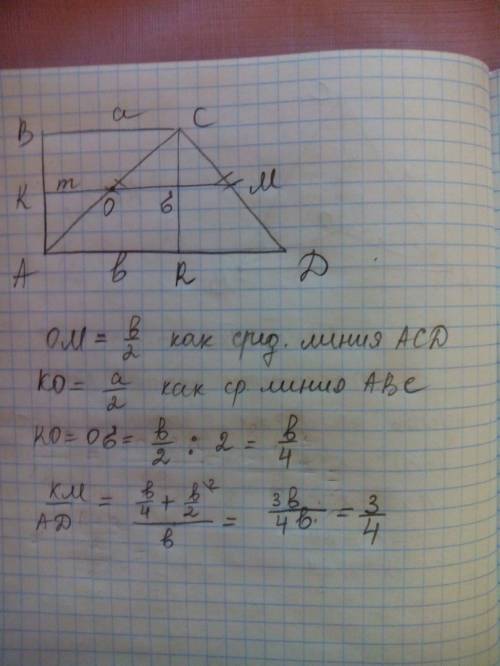 a
B C
K m O б M
A в R D
OM = в/2 как сред. линия ACD
KO = a/2 как ср. линию ABC
KO = Oб = в/2 : 2 = в/4
KM/AD = (в/4 + в/2²)/в = 3в/4в = 3/4